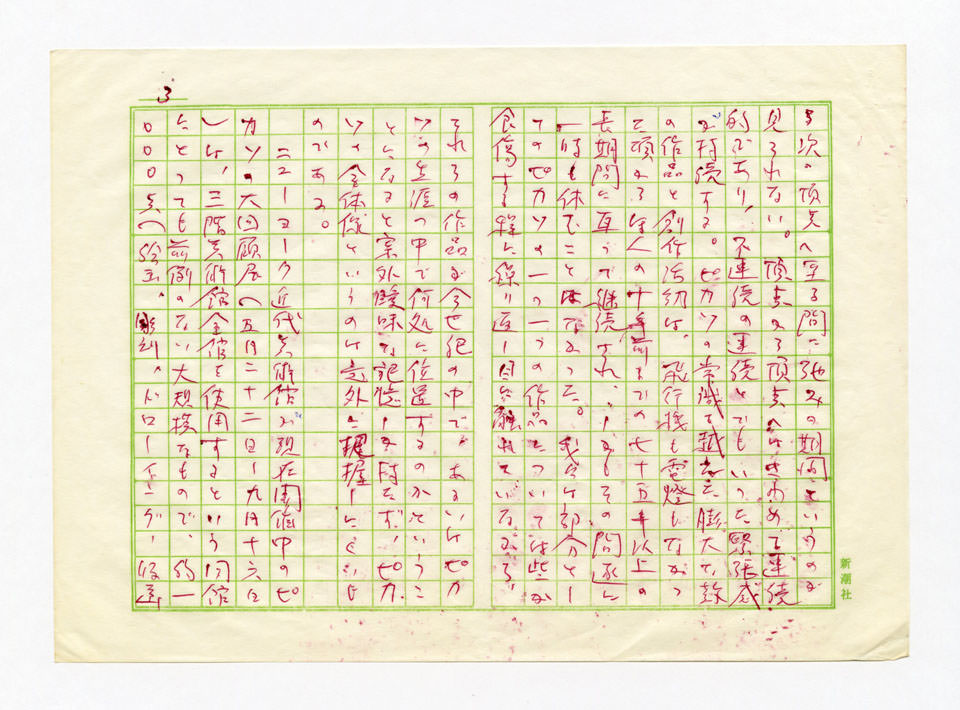 3
る次の頂点へ至る間に弛みの期間というのが
見られない。頂点から頂点へはきわめて連続
的であり、不連続の連続とでもいった緊張感
が持続する。ピカソの常識を越えた膨大な数
の作品と創作活動は、飛行機も電燈もなかっ
た頃から老人の十年前までの七十五年以上の
長期間に亘って継続され、しかもその間遂に
一時も休むことはなかった。我々は部分とし
てのピカソの一つ一つの作品については些か
食傷する程に繰り返し目に触れていながら、
それらの作品が今世紀の中で、あるいはピカ
ソの生涯の中で何処に位置するのかというこ
とになると案外曖昧な記憶しか持たず、ピカ
ソの全体像というのは意外に把握しにくいも
のである。
ニューヨーク近代美術館が現在開催中のピ
カソの大回顧展(五月二十二日〜九月十六日
)は、三階美術館全館を使用するという同館
にとっても前例のない大規模なもので、約一
〇〇〇点(絵画、彫刻、ドローイング、版画
新潮社